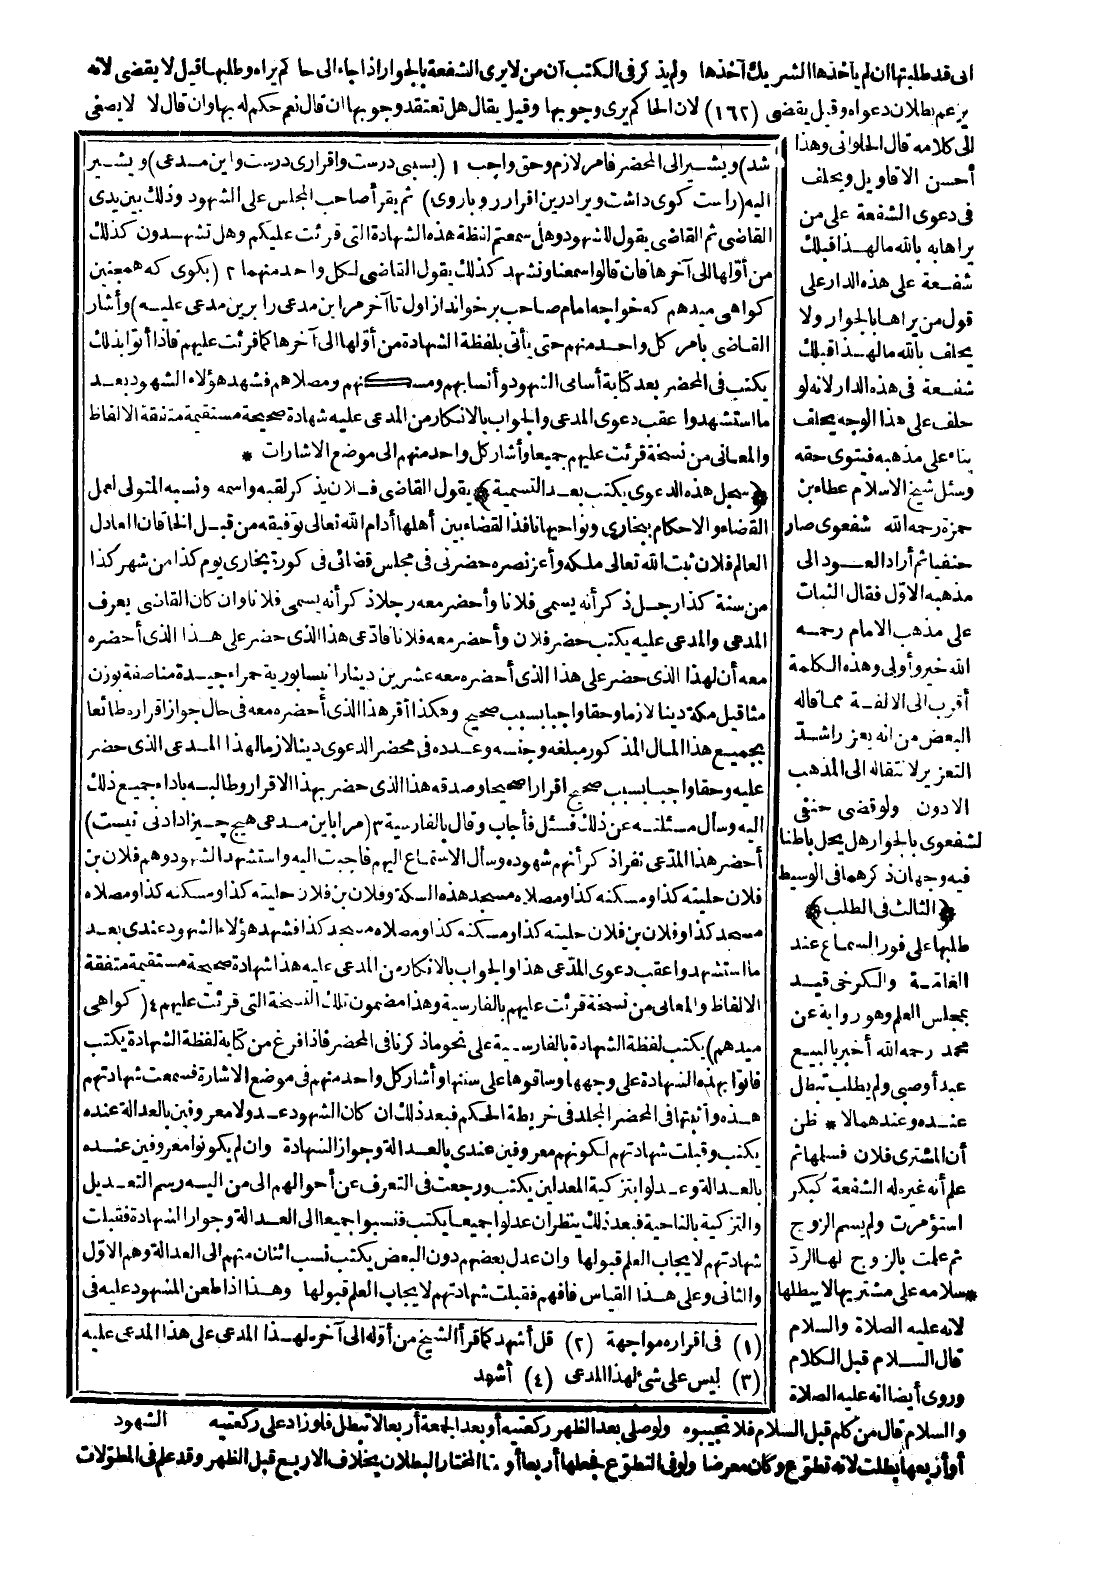 انى قد طلبتها ان لم يأخذها الشريك آخذها ولم يذكر فى الكتب أن من لا يرى الشفعة بالجوار اذا جاء الى حاكم يراه وطلبها قيل لا يقضى لانه
يزعم بطلان دعواه وقيل يقضى (١٦٢) لان الحاكم يرى وجوبها وقيل يقال هل تعتقد وجوبها ان قال نعم حكم له بها وان قال لا لا يصغى
الى كلامه قال الحلوانى وهذا
أحسن الاقاويل ويحلف
فى دعوى الشفعة على من
يراها به بالله ما لهذا قبلك
شفعة على هذه الدار على
قول من يراها بالجوار ولا
يحلف بالله ما لهذا قبلك
شفعة فى هذه الدار لانه لو
حلف على هذا الوجه يحلف
بناء على مذهبه فيتوى حقه
وسئل شيخ الاسلام عطاء بن
حمزة رحمه الله شفعوى صار
حنفيا ثم أراد العود الى
مذهبه الاول فقال الثبات
على مذهب الامام رحمه
الله خير وأولى وهذه الكلمة
أقرب الى الالفة مما قاله
البعض من انه يعزر اشد
التعزير لانتقاله الى المذهب
الادون ولو قضى حنفى
لشفعوى بالجوار هل يحل باطنا
فيه وجهان ذكرهما فى الوسيط
﴿الثالث فى الطلب﴾
طلبها على فور السماع عند
العامة والكرخى قيد
بمجلس العلم وهو رواية عن
محمد رحمه الله أخبر بالبيع
عبد أو صبى ولم يطلب تبطل
عنده وعندهما لا * ظن
أن المشترى فلان فسلمها ثم
علم أنه غيره له الشفعة كبكر
استؤمرت ولم يسم الزوج
ثم علمت بالزوج لها الرد
* سلامه على مشتريها لا يبطلها
لانه عليه الصلاة والسلام
قال السلام قبل الكلام
وروى أيضا انه عليه الصلاة
شد) ويشير الى المحضر فامر لازم وحق واجب ١ (بسبى درست واقرارى درست واين مدعى) ويشير
اليه (راست كوى داشت ويرا درين اقرار رو باروى) ثم يقر أصاحب المجلس على الشهود وذلك بين يدى
القاضى ثم القاضى يقول للشهود وهل سمعتم لفظة هذه الشهادة التى قرئت عليكم وهل تشهدون كذلك
من أولها الى آخرها فان قالوا سمعنا ونشهد كذلك يقول القاضى لكل واحد منهما ٢ (بكوى كه همچنين
كواهى ميدهم كه خواجه امام صاحب برخواند از اول تا آخر مر اين مدعى را برين مدعى عليه) وأشار
القاضى يامر كل واحد منهم حتى يأتى بلفظة الشهادة من أولها الى آخرها كما قرئت عليهم فاذا أتوا بذلك
يكتب فى المحضر بعد كتابة أسامى الشهود وأنسابهم ومسكنهم ومصلاهم فشهد هؤلاء الشهود بعد
ما استشهدوا عقب دعوى المدعى والجواب بالانكار من المدعى عليه شهادة صحيحة مستقيمة متفقة الالفاظ
والمعانى من نسخة قرئت عليهم جميعا وأشار كل واحد منهم الى موضع الاشارات *
﴿سجل هذه الدعوى يكتب بعد التسمية﴾ يقول القاضى فلان يذكر لقبه واسمه ونسبه المتولى لعمل
القضاء والاحكام ببخارى ونواحيها نافذ القضاء بين أهلها أدام الله تعالى توفيقه من قبل الخاقان العادل
العالم فلان ثبت الله تعالى ملكه وأعز نصره حضرنى فى مجلس قضائى فى كورة بخارى يوم كذا من شهر كذا
من سنة كذا رجل ذكر أنه يسمى فلانا وأحضر معه رجلا ذكر أنه يسمى فلانا وان كان القاضى يعرف
المدعى والمدعى عليه يكتب حضر فلان وأحضر معه فلانا فادعى هذا الذى حضر على هذا الذى أحضره
معه أن لهذا الذى حضر على هذا الذى أحضره معه عشرين دينارا نيسابورية حمراء جيدة مناصفة بوزن
مثاقيل مكة دينا لازما وحقا واجبا بسبب صحيح وهكذا أقر هذا الذى أحضره معه فى حال جواز اقراره طائعا
بجميع هذا المال المذكور مبلغه وجنسه وعدده فى محضر الدعوى دينا لازما لهذا المدعى الذى حضر
عليه وحقا واجبا بسبب صحيح اقرارا صحيحا وصدقه هذا الذى حضر بهذا الاقرار وطالبه باداء جميع ذلك
اليه وسأل مسئلته عن ذلك فسئل فأجاب وقال بالفارسية ٣ (مرا باين مدعى هيچ چيز دادنى نيست)
أحضر هذا المدعى نفرا ذكر أنهم شهوده وسأل الاستماع اليهم فاجبت اليه واستشهد الشهود وهم فلان بن
فلان حليته كذا ومسكنه كذا ومصلاه مسجد هذه السكة وفلان بن فلان حليته كذا ومسكنه كذا ومصلاه
مسجد كذا وفلان بن فلان حليته كذا ومسكنه كذا ومصلاه مسجد كذا فشهد هؤلاء الشهود عندى بعد
ما استشهدوا عقب دعوى المدعى هذا والجواب بالانكار من المدعى عليه هذا شهادة صحيحة مستقيمة متفقة
الالفاظ والمعانى من نسخة قرئت عليهم بالفارسية وهذا مضمون تلك النسخة التى قرئت عليهم ٤ (كواهى
ميدهم) يكتب لفظة الشهادة بالفارسية على نحو ما ذكرنا فى المحضر فاذا فرغ من كتابة لفظة الشهادة يكتب
فاتوا بهذه الشهادة على وجهها وساقوها على سننها وأشار كل واحد منهم فى موضع الاشارة فسمعت شهادتهم
هذه وأثبتها فى المحضر المجلد فى خريطة الحكم فبعد ذلك ان كان الشهود عدولا معروفين بالعدالة عنده
يكتب وقبلت شهادتهم لكونهم معروفين عندى بالعدالة وجواز الشهادة وان لم يكونوا معروفين عنده
بالعدالة وعدلوا بتزكية المعدلين يكتب ورجعت فى التعرف عن أحوالهم الى من اليه رسم التعديل
والتزكية بالناحية فبعد ذلك ينظر ان عدلوا جميعا يكتب فنسبوا جميعا الى العدالة وجواز الشهادة فقبلت
شهادتهم لا يجاب العلم قبولها وان عدل بعضهم دون البعض يكتب نسب اثنان منهم الى العدالة وهم الاول
والثانى وعلى هذا القياس فافهم فقبلت شهادتهم لا يجاب العلم قبولها وهذا اذا طعن المشهود عليه فى
(١) فى اقراره مواجهة (٢) قل أشهد كما قرأ الشيخ من أوله الى آخره لهذا المدعى على هذا المدعى عليه
(٣) ليس على شئ لهذا المدعى (٤) أشهد
والسلام قال من كلم قبل السلام فلا تجيبوه ولو صلى بعد الظهر ركعتيه أو بعد الجمعة أربعا لا تبطل فلو زاد على ركعتيه الشهود
أو أربعها بطلت لانه تطوع وكان معرضا ولو فى التطوع فجعلها أربعا أو ستا المختار البطلان بخلاف الاربع قبل الظهر وقد علم فى المطولات